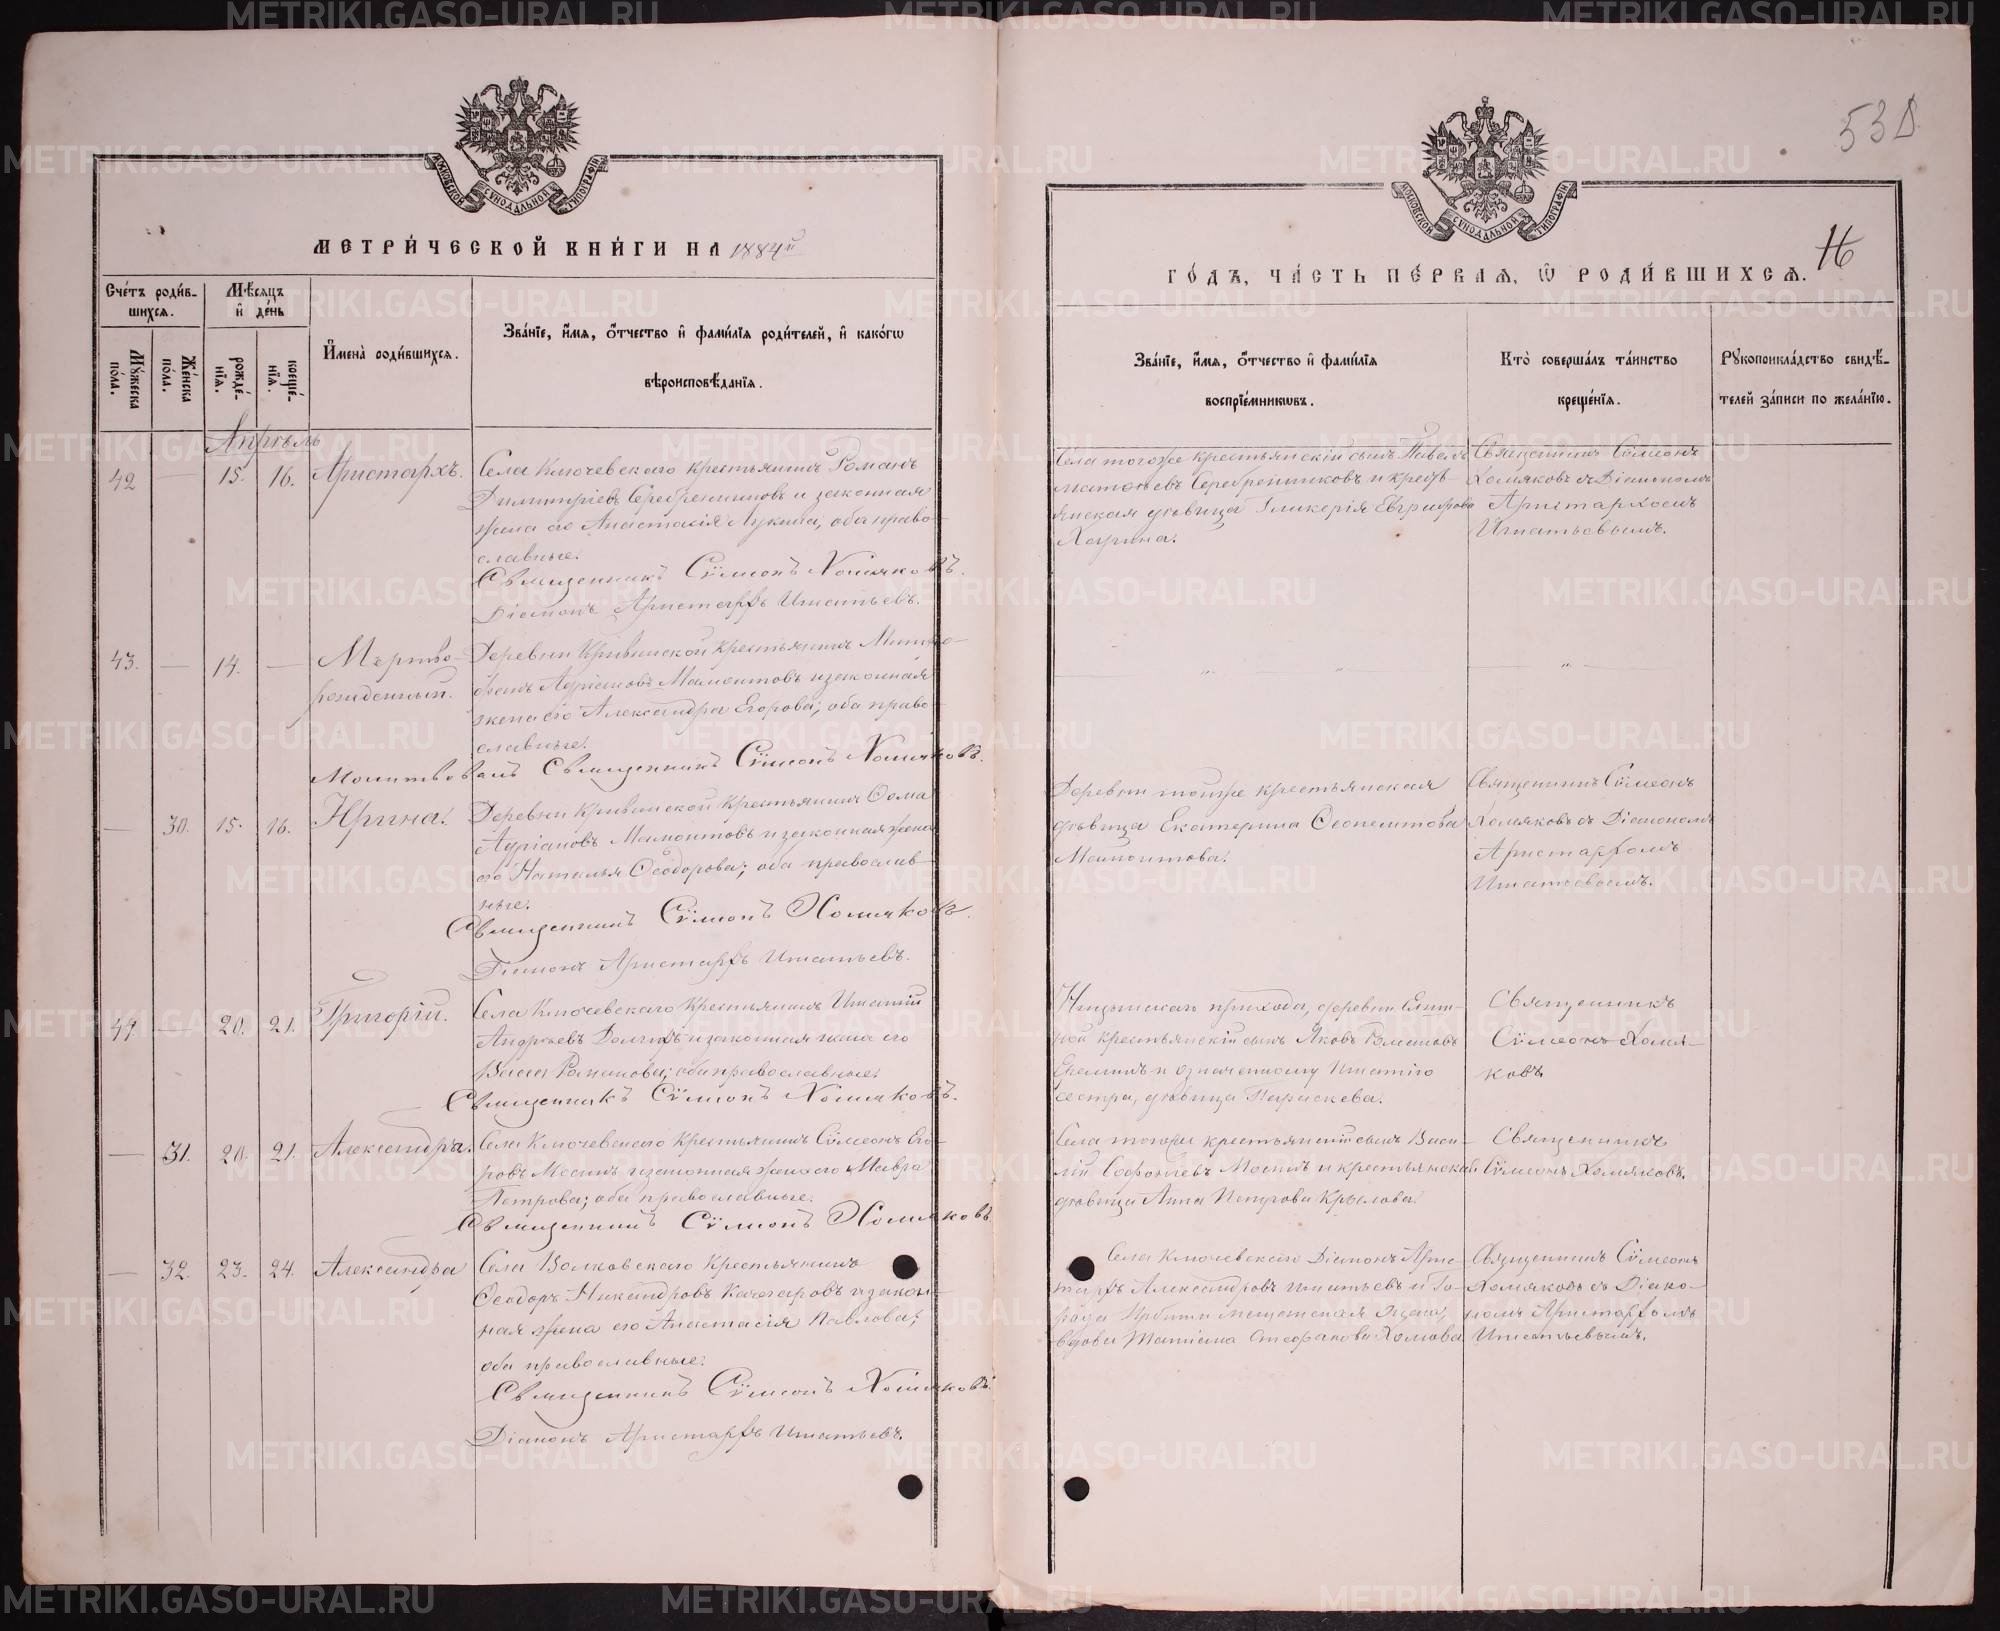 538
МОСКОВСКОЙ СѴНОДАЛЬНОЙ ТИПОГРАФІИ
МОСКОВСКОЙ СѴНОДАЛЬНОЙ ТИПОГРАФІИ
МЕТРИ́ЧЕСКОЙ КНИ́ГИ НА 1884й
ГО́ДЪ, ЧА́СТЬ ПЕ́РВАЯ, Ѡ РОДИ́ВШИХСЯ.
16
Сче́тъ роди́в-
шихся.
Мѣ́сяцъ
и де́нь
Му́жеска по́ла.
Же́нска по́ла.
рожде́нїя.
креще́нїя.
Имена̀ роди́вшихся.
Зва́нїе, и́мя, о́тчество и фами́лїя роди́телей, и како́гѡ
вѣроисповѣ́данїя.
Зва́нїе, и́мя, о́тчество и фами́лїя
воспрїе́мникѡвъ.
Кто̀ соверша́лъ та́инство
креще́нїя.
Рукоприкла́дство свидѣ́-
телей за́писи по жела́нїю.
Апрѣль
42 — 15. 16. Аристархъ.
Села Ключевскаго крестьянинъ Романъ
Димитріевъ Серебренниковъ и законная
жена его Анастасія Лукина; оба право-
славные.
Священникъ Сѵмеонъ Хомяковъ.
Діаконъ Аристархъ Игнатьевъ.
Села того же крестьянскій сынъ Павелъ
Матѳѣевъ Серебренниковъ и кресть-
янская дѣвица Гликерія Евграфова
Священникъ Сѵмеонъ
Хомяковъ съ Діакономъ
Аристархомъ
Игнатьевымъ.
43. — 14. — Мертво-
рожденный.
Деревни Кривинской крестьянинъ Митро-
фанъ Адріановъ Мамонтовъ и законная
жена его Александра Егорова; оба право-
славные.
Молитвовалъ Священникъ Сѵмеонъ Хомяковъ.
— „ „ — „ —
— 30. 15. 16. Ирина.
Деревни Кривинской крестьянинъ Ѳома
Адріановъ Мамонтовъ и законная жена
его Наталья Ѳеодорова; оба православ-
ные.
Священникъ Сѵмеонъ Хомяковъ.
Діаконъ Аристархъ Игнатьевъ.
Деревни той же крестьянская
дѣвица Екатерина Ѳеопемптова
Мамонтова.
Священникъ Сѵмеонъ
Хомяковъ съ Діакономъ
Аристархомъ
Игнатьевымъ.
44. — 20. 21. Григорій.
Села Ключевскаго крестьянинъ Игнатій
Андреевъ Долгихъ и законная жена его
Васса Романова; оба православные.
Священникъ Сѵмеонъ Хомяковъ.
прихода, деревни
крестьянскій сынъ Яковъ Романовъ
Ереминъ и означенному Игнатію
сестра, дѣвица Параскева.
Священникъ
Сѵмеонъ Хомя-
ковъ
— 31. 20. 21. Александра.
Села Ключевскаго крестьянинъ Сѵмеонъ Его-
ровъ Мосинъ и законная жена его Мавра
Петрова; оба православные.
Священникъ Сѵмеонъ Хомяковъ
Села того же крестьянскій сынъ Васи-
лій Софоніевъ Мосинъ и крестьянская
дѣвица Анна Петрова Крылова.
Священникъ
Сѵмеонъ Хомяковъ.
— 32. 23. 24. Александра
Села Волковскаго Крестьянинъ
Ѳеодоръ Никандровъ Качегаровъ и закон-
ная жена его Анастасія Павлова;
оба православные.
Священникъ Сѵмеонъ Хомяковъ.
Діаконъ Аристархъ Игнатьевъ.
Села Ключевскаго Діаконъ Арис-
тархъ Александровъ Игнатьевъ и Го-
рода Ирбити мещанская
вдова Татіана Стефанова Хомова
Священникъ Сѵмеонъ
Хомяковъ съ Діако-
номъ Аристархомъ
Игнатьевымъ.
METRIKI.GASO-URAL.RU